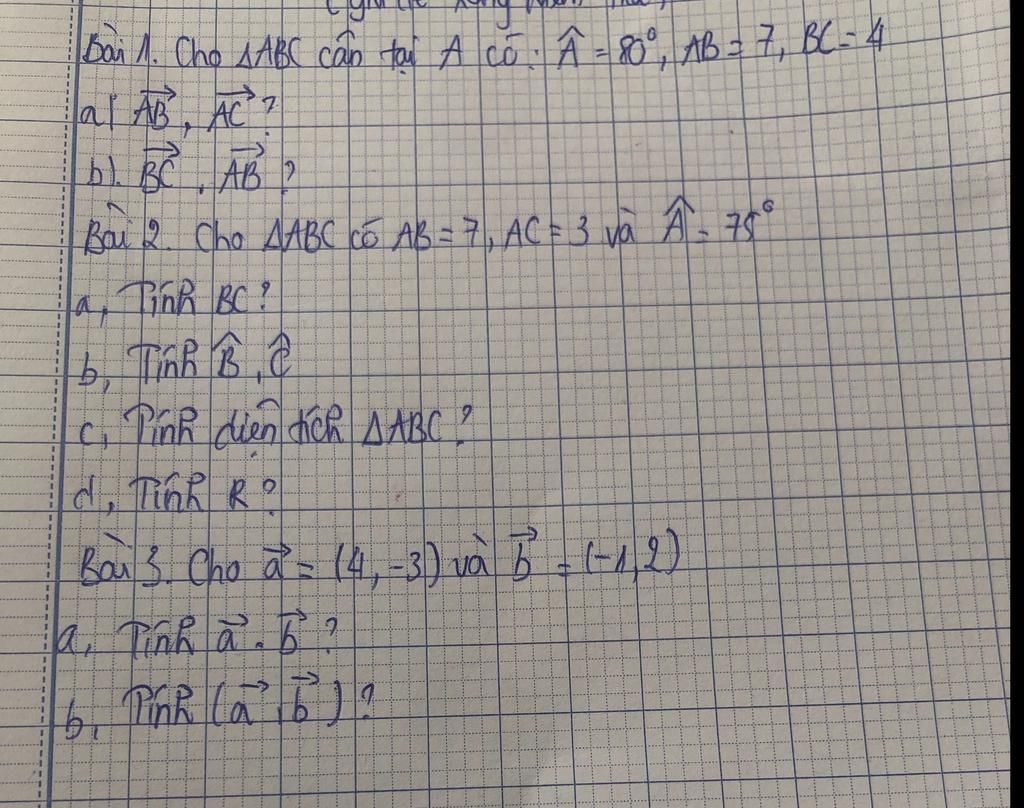 Bài 1. Cho ΔABC cân tại A có: Â = 80°, AB = 7, BC = 4
a) $\overrightarrow{AB}$, $\overrightarrow{AC}$?
b). $\overrightarrow{BC}$. $\overrightarrow{AB}$?
Bài 2. Cho ΔABC có AB = 7, AC = 3 và Â = 75°
a, Tính BC?
b, Tính $\widehat{B}$, $\widehat{C}$
c, Tính diện tích ΔABC?
d, Tính R?
Bài 3. Cho $\vec{a}$ = (4, -3) và $\vec{b}$ = (-1, 2)
a, Tính $\vec{a}$. $\vec{b}$?
b, Tính ($\vec{a}$, $\vec{b}$)?